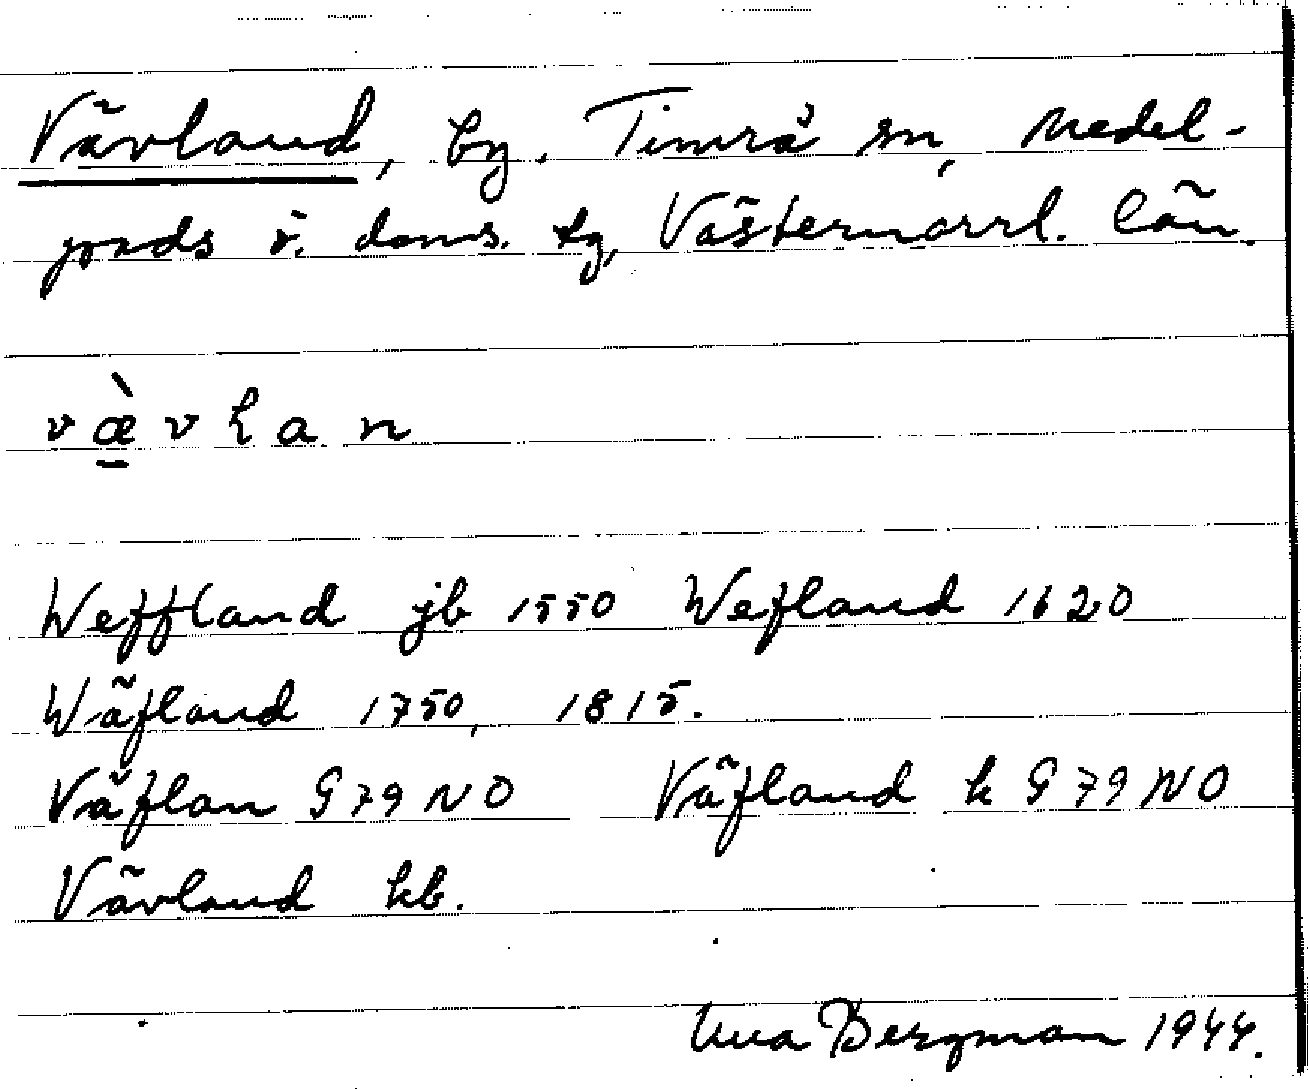 Vävland, by. Timrå sn, Medel-
pads v. doms. tg, Västernorrl. län.
væ̠̀vlan
Weffland jb 1550 Wefland 1620
Wäfland 1750, 1815.
Väflan G 79 NO Väfland k G 79 NO
Vävland kb.
Una Bergman 1944.